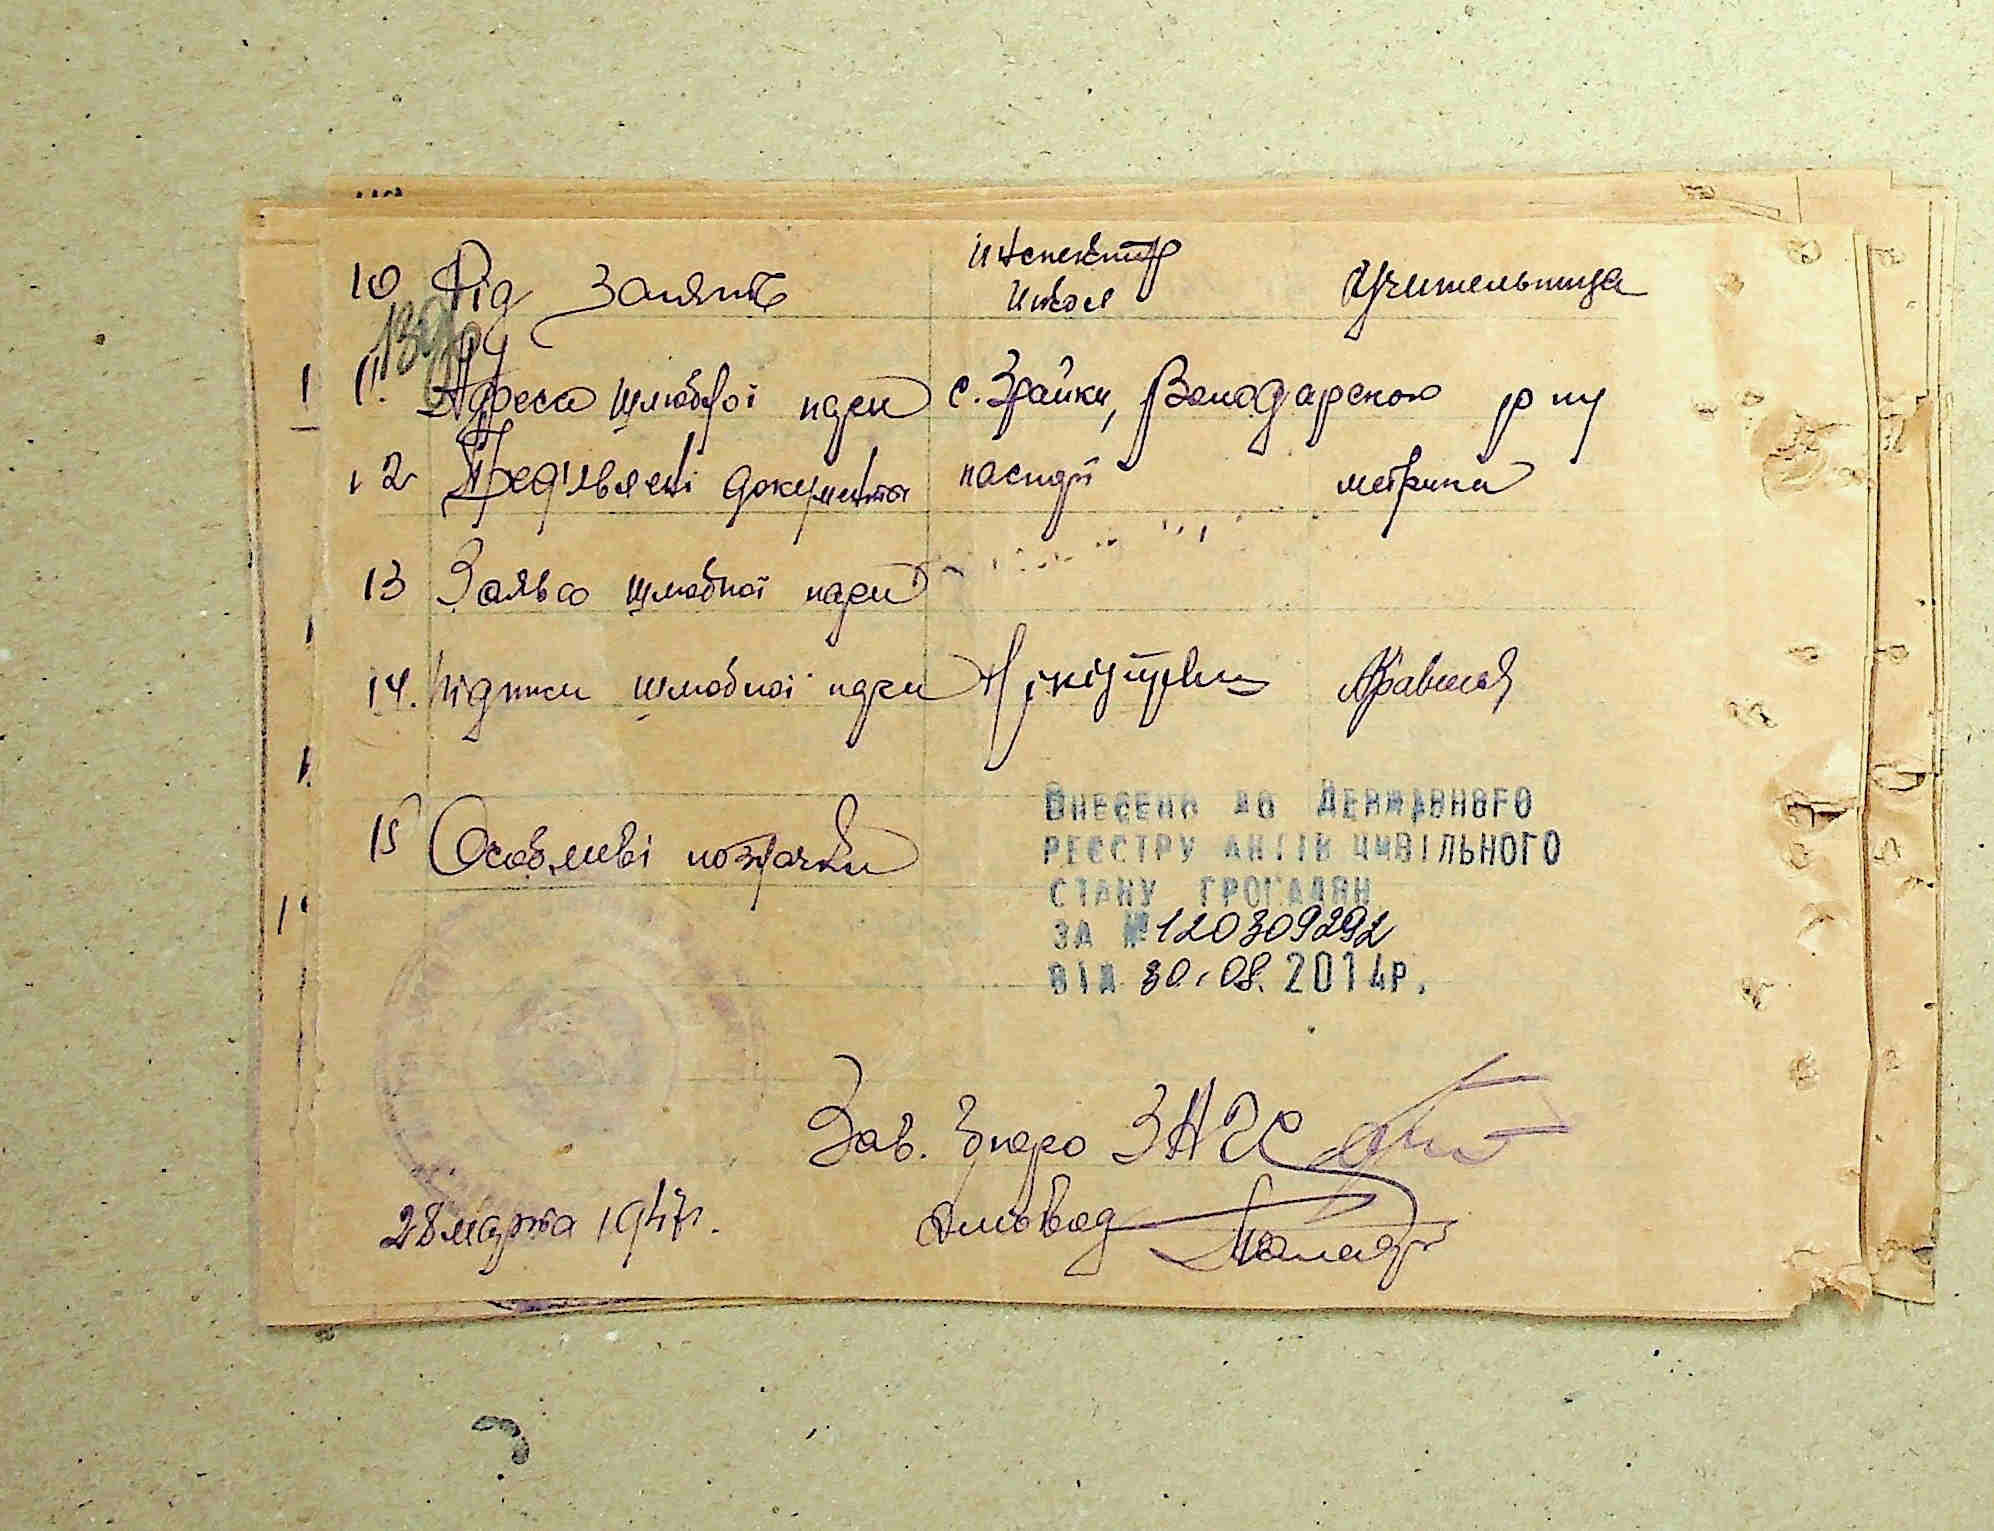 10 Рід занять
Инспектор школ
Учительница
139
11. Адреса шлюбної пари с. Зрайки, Володарского р ну
12 Пред'явлені документы паспорт метрика
13 Заява шлюбної пари
14. Підписи шлюбної пари
15 Особливі позначки
Внесено до Державного
реєстру актів цивільного
стану громадян
за № 120309292
від 30.08.2014р.
Зав. Бюро ЗАГС
Діловод
28 марта 1947г.